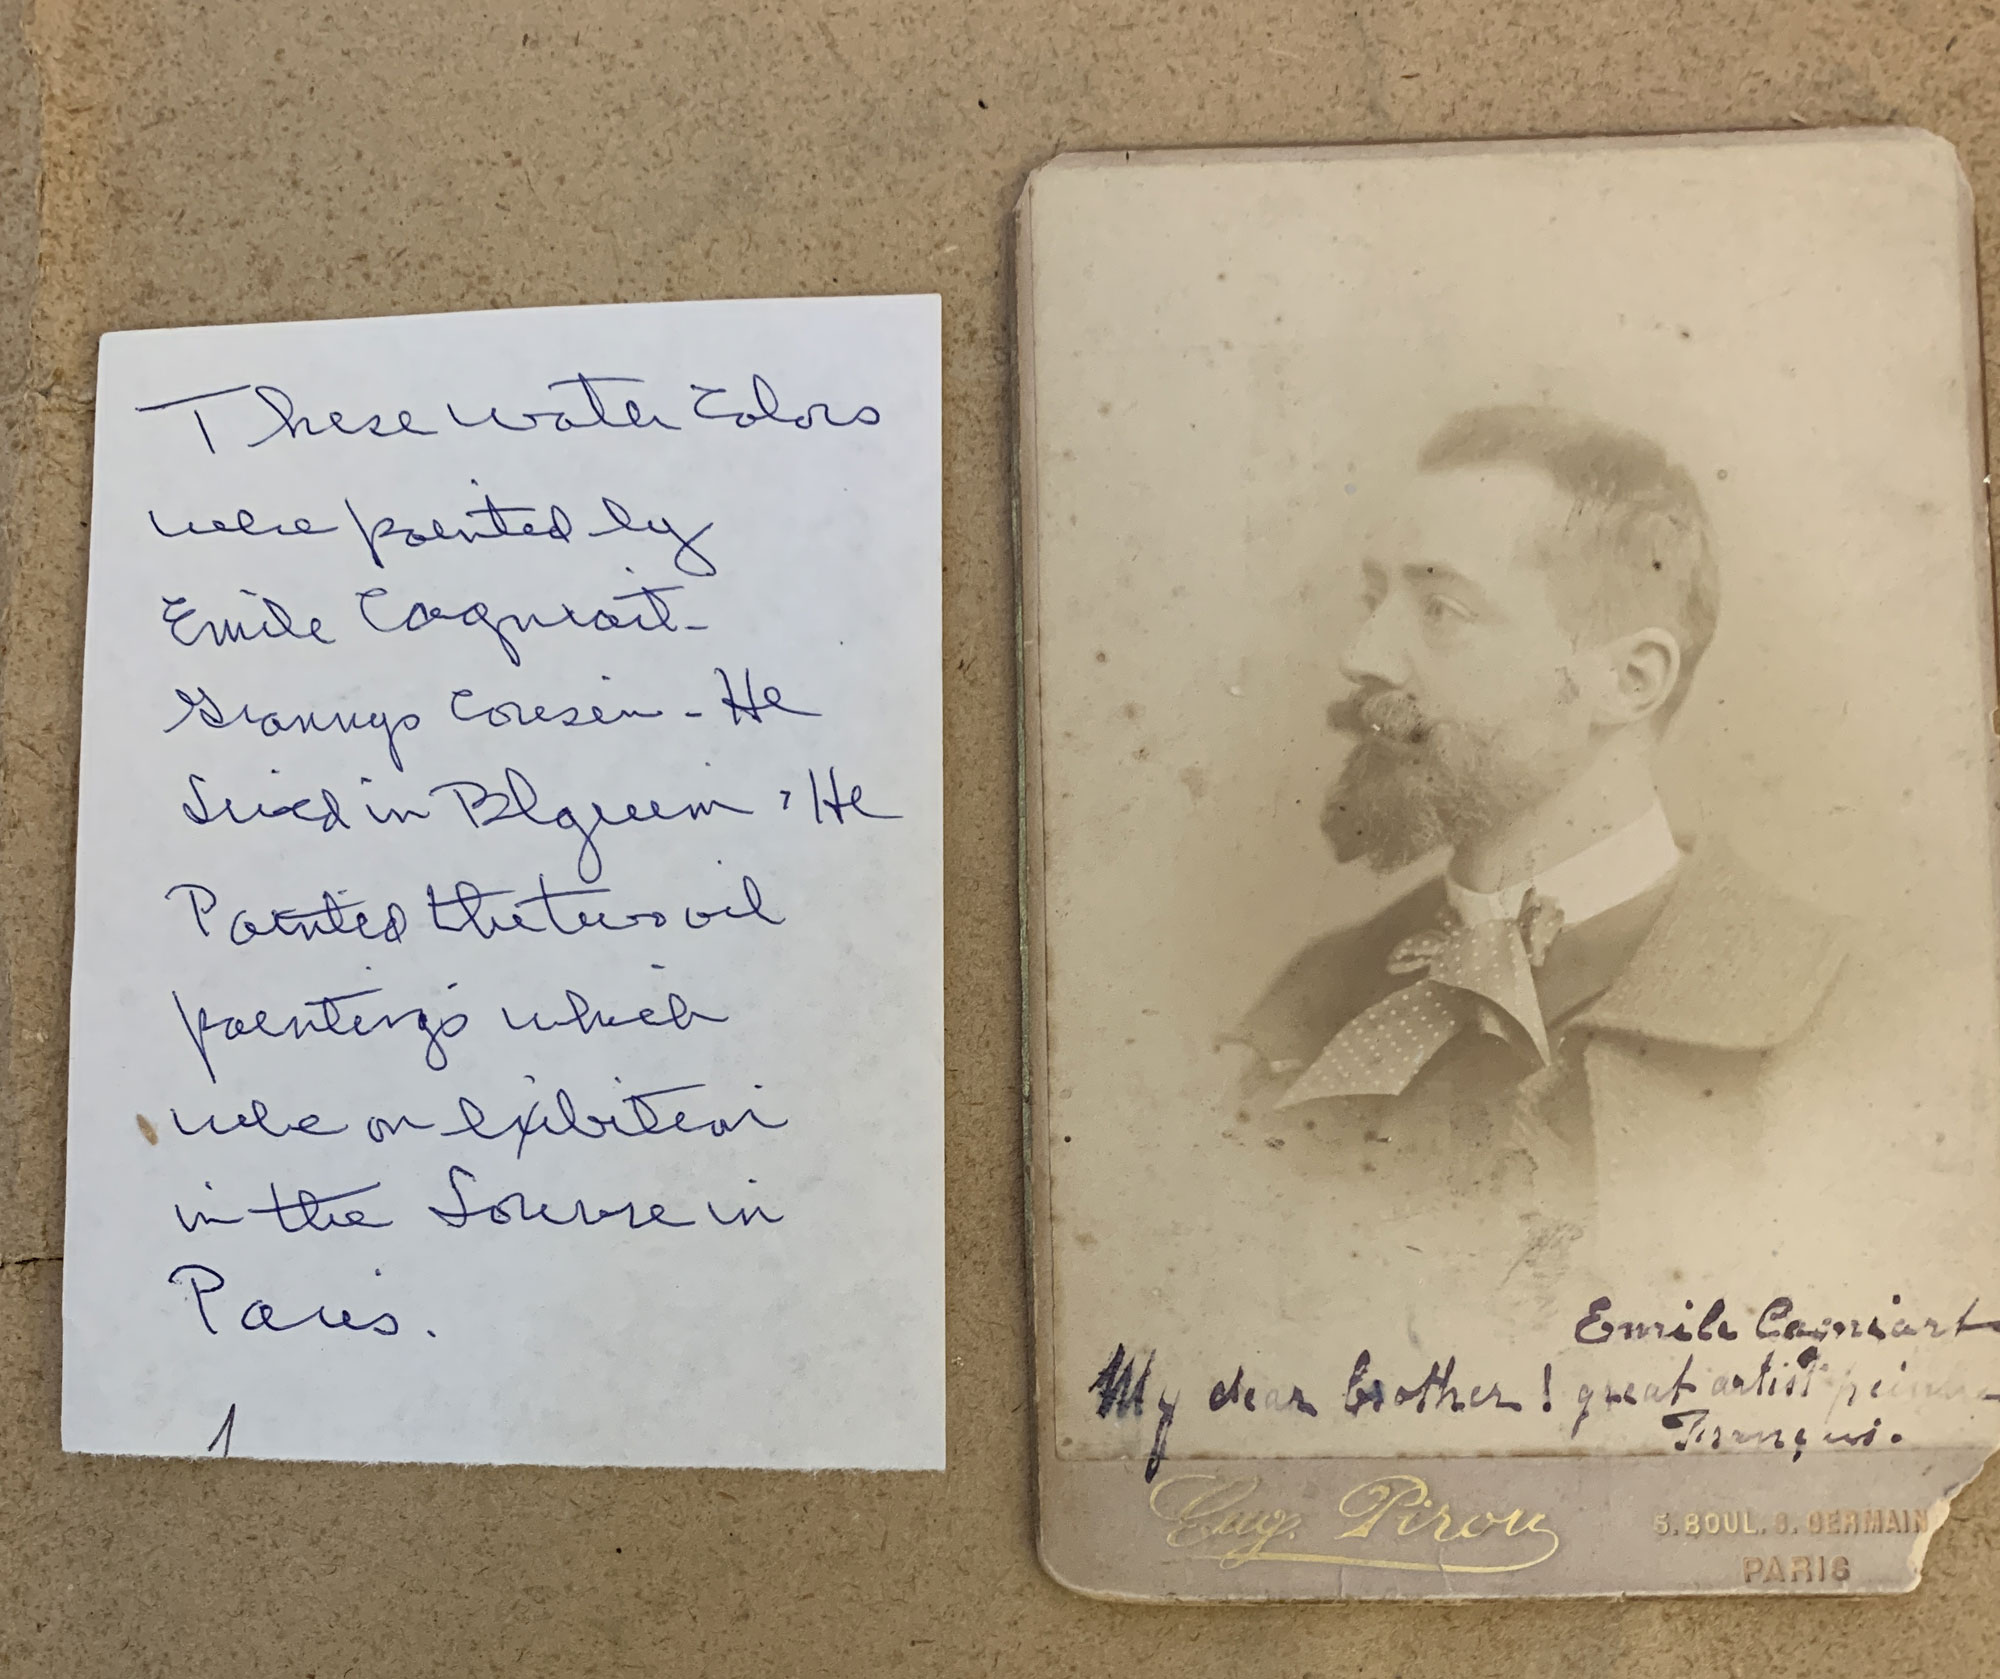 These water Colors
were painted by
Emile Cagniart -
Grannys Cousin - He
lived in Blgium. He
Painted the two oil
paintings which
were on exibition
in the Louvre in
Paris.
Emile Cagniart
My dear brother! great artist peintre
Français.
Eug. Pirou
5. BOUL. S. GERMAIN
PARIS